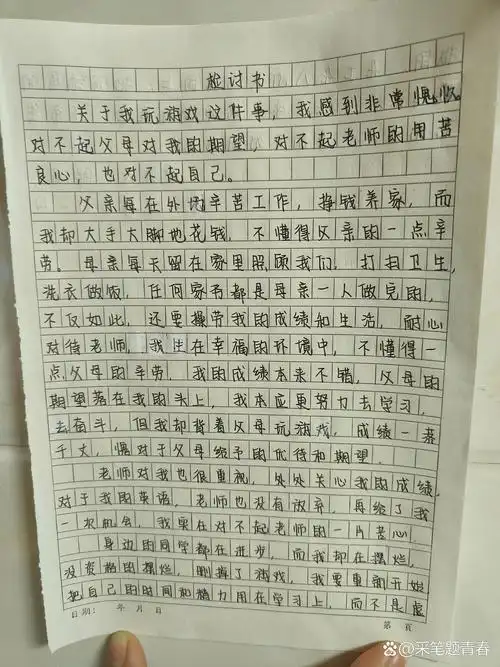 检讨书
关于我玩游戏这件事，我感到非常愧疚
对不起父母对我的期望，对不起老师的用苦
良心，也对不起自己。
父亲每在外地辛苦工作，挣钱养家，而
我却大手大脚地花钱，不懂得父亲的一点辛
劳。母亲每天留在家里照顾我们，打扫卫生，
洗衣做饭，任何家务都是母亲一人做完的，
不仅如此，还要操劳我的成绩和生活，耐心
对待老师，我生在幸福的环境中，不懂得一
点父母的辛劳，我的成绩本来不错，父母的
期望落在我的头上，我本应更努力去学习，
去奋斗，但我却背着父母玩游戏，成绩一落
千丈，愧对于父母给予的优待和期望。
老师对我也很重视，处处关心我的成绩，
对于我的英语，老师也没有放弃，再给了我
一次机会，我实在对不起老师的一片苦心
身边的同学都在进步，而我却在摆烂，
没资格的摆烂，删掉了游戏，我要重新开始，
把自己的时间和精力用在学习上，而不是虚
日期： 年 月 日 第 页
@采笔题青春